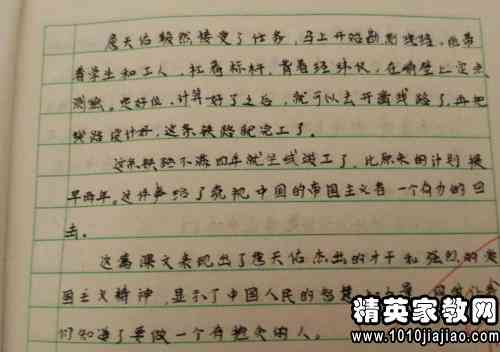 詹天佑毅然接受了任务，马上开始勘测线路。他带
着学生和工人，扛着标杆，背着经纬仪，在峭壁上定点
测绘。定好位，计算好了之后，就可以去开凿线路了，再把
线路设计好，这条铁路就完工了。
这条铁路不满四年就全线竣工了，比原来的计划提
早两年。这件事给了藐视中国的帝国主义者一个有力的回
击。
这篇课文表现出了詹天佑杰出的才干和强烈的爱
国主义精神，显示了中国人民的智慧
们知道了要做一个有抱负的人。
精英家教网
www.1010jiajiao.com